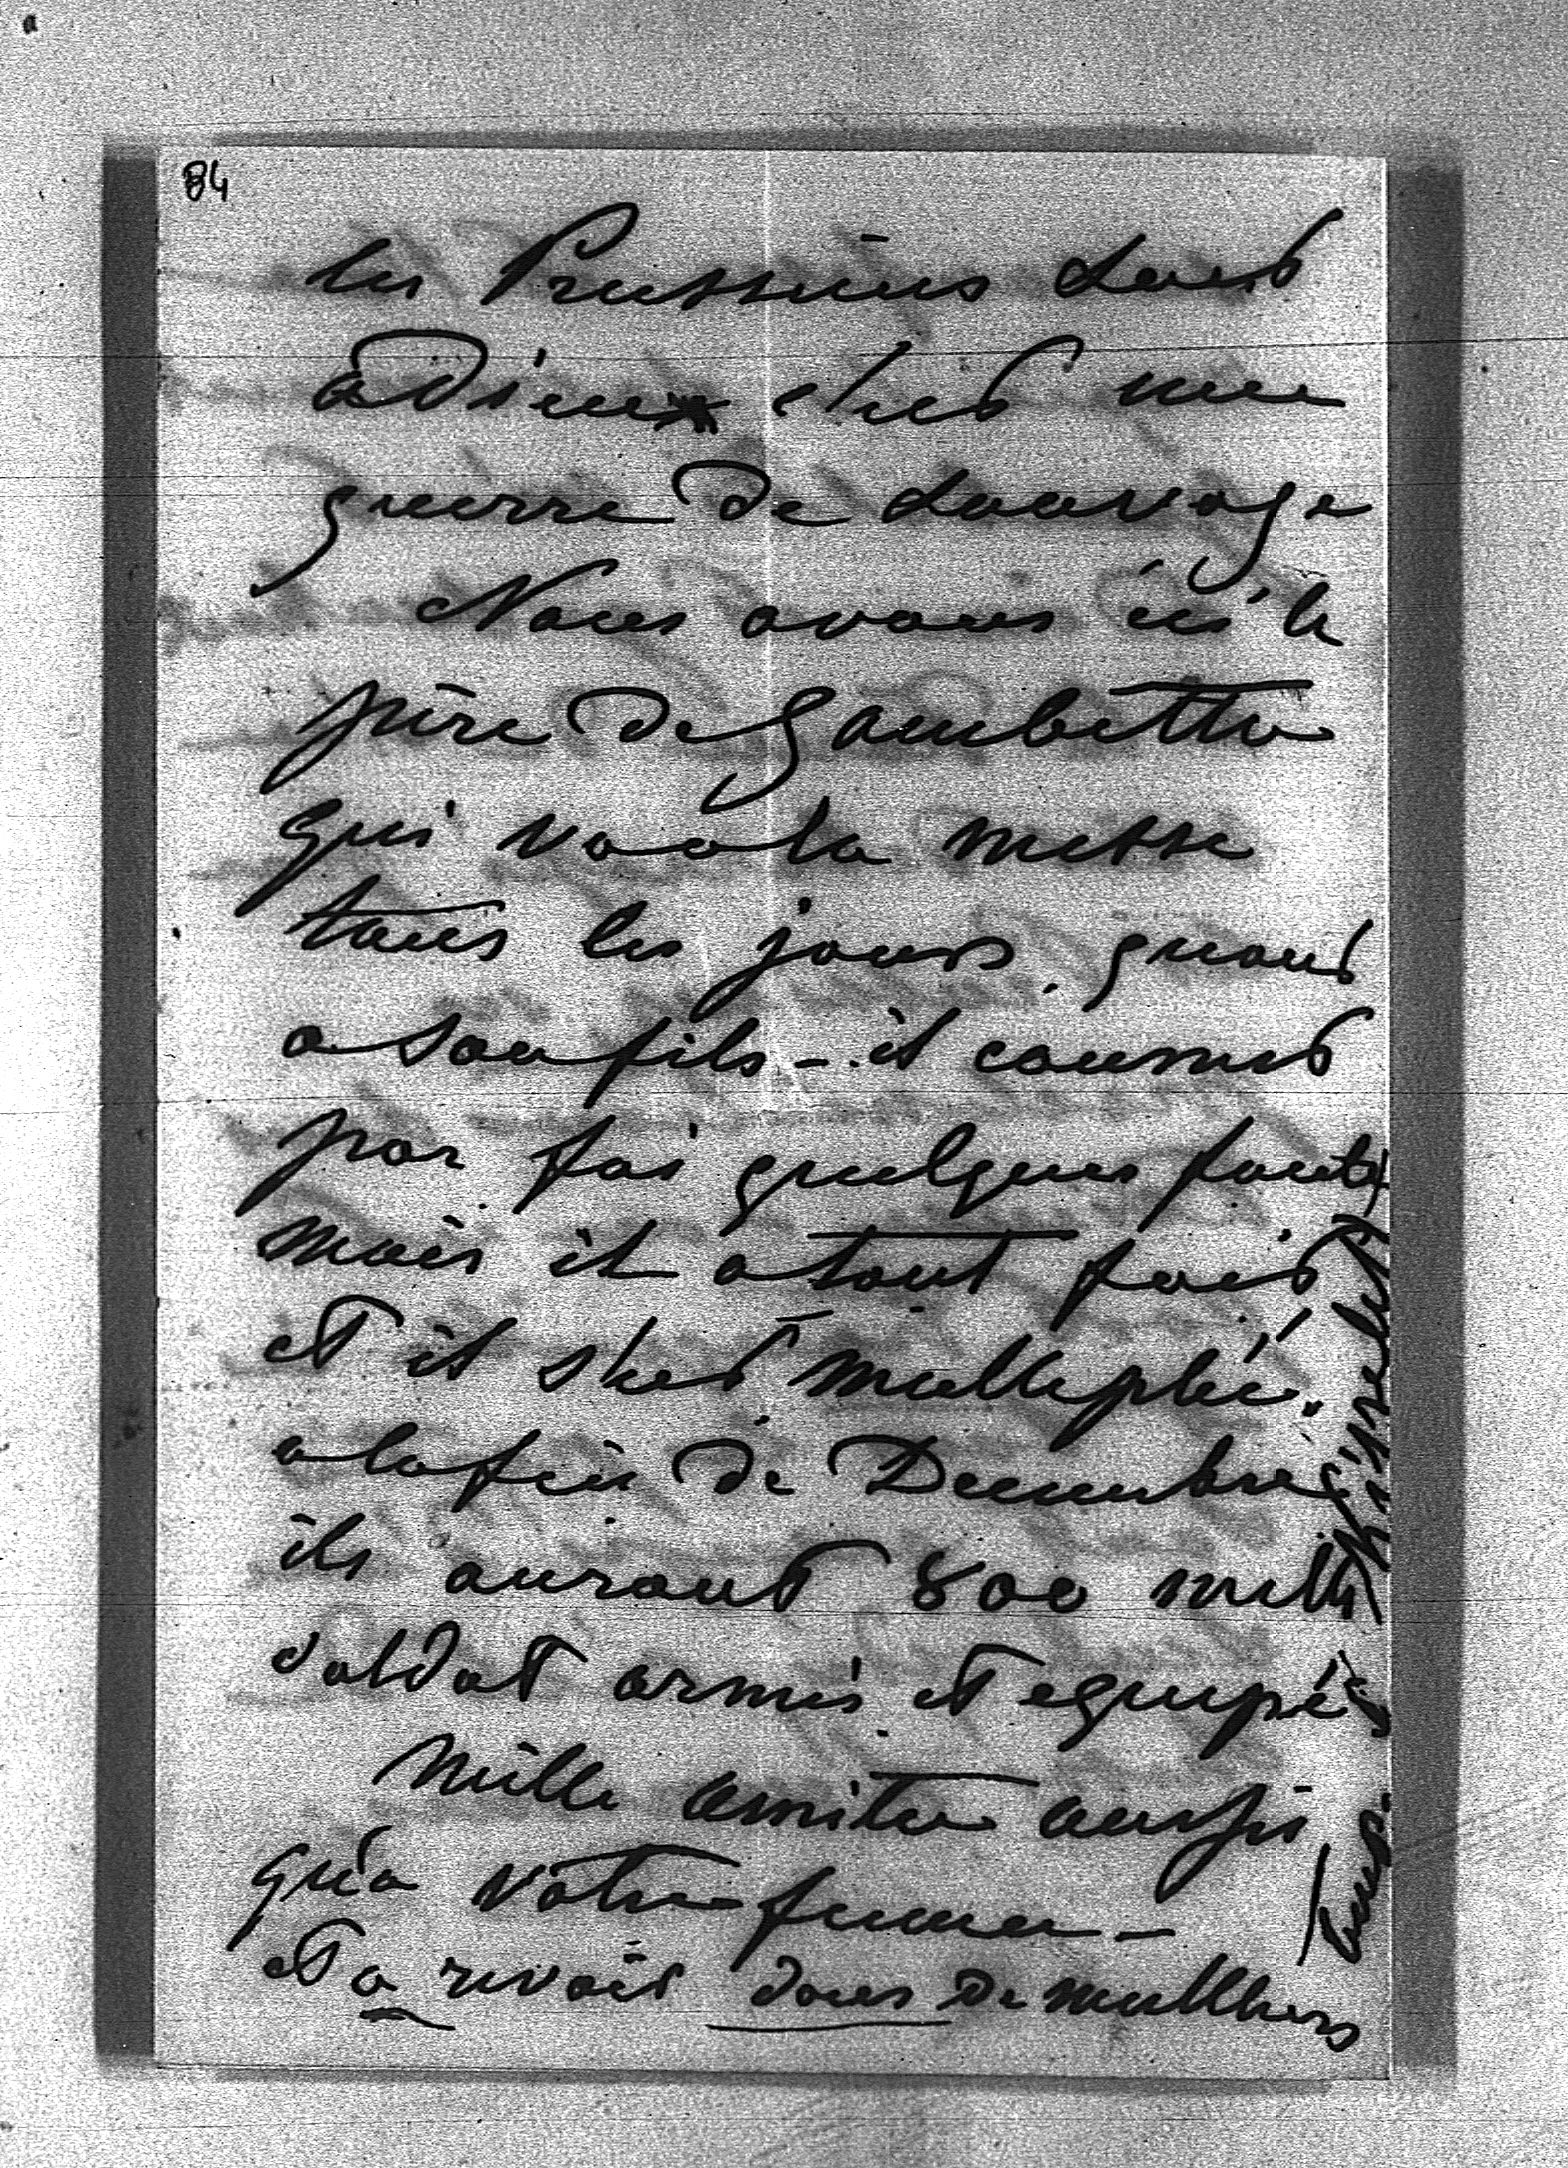 84
les Prussiens sont
odieux c'est une
guerre de sauvage
Nous avons ici le
père de Gambetta
qui va a la messe
tous les jours. quant
a son fils - il commet
par fois quelques faute
mais il a tout fait
et il s'est multiplié.
a la fin de Decembre
ils auront 800 mille
soldat armés et equipés
Mille amitié aussi
qu'a votre femme -
et a revoir dans de meilleurs
temps.